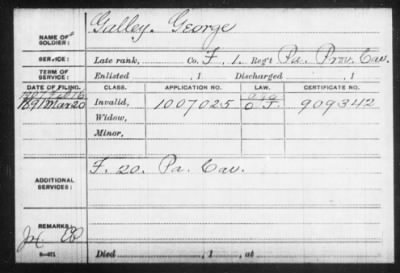 NAME OF SOLDIER: Galley, George
SERVICE: Late rank, Co. F, 1. Reg't Pa. Prov. Cav.
TERM OF SERVICE: Enlisted , 1 Discharged , 1
DATE OF FILING. CLASS. APPLICATION NO. LAW. CERTIFICATE NO.
1891 Mar 20 Invalid, 1007025 909342
Widow,
Minor,
ADDITIONAL SERVICES: F. 20. Pa. Cav.
REMARKS:
Died , 1 , at